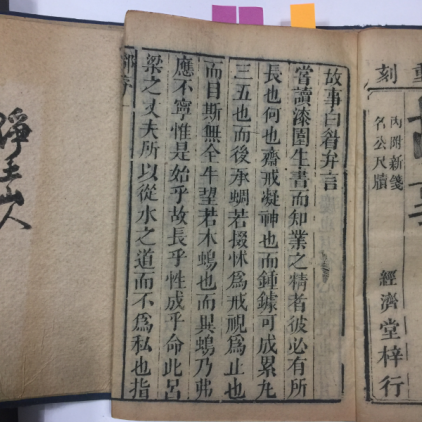 刻
內附新箋
名公尺牘
經濟堂梓行
故事白眉弁言
嘗讀漆園生書而知業之精者彼必有所
長也何也齋戒凝神也而鍾鐻可成累丸
三五也而後承蜩若掇怵爲戒視爲止也
而目斯無全牛望若木鳮也而異鳮乃弗
應不寧惟是始乎故長乎性成乎命此呂
梁之丈夫所以從水之道而不爲私也指
山人